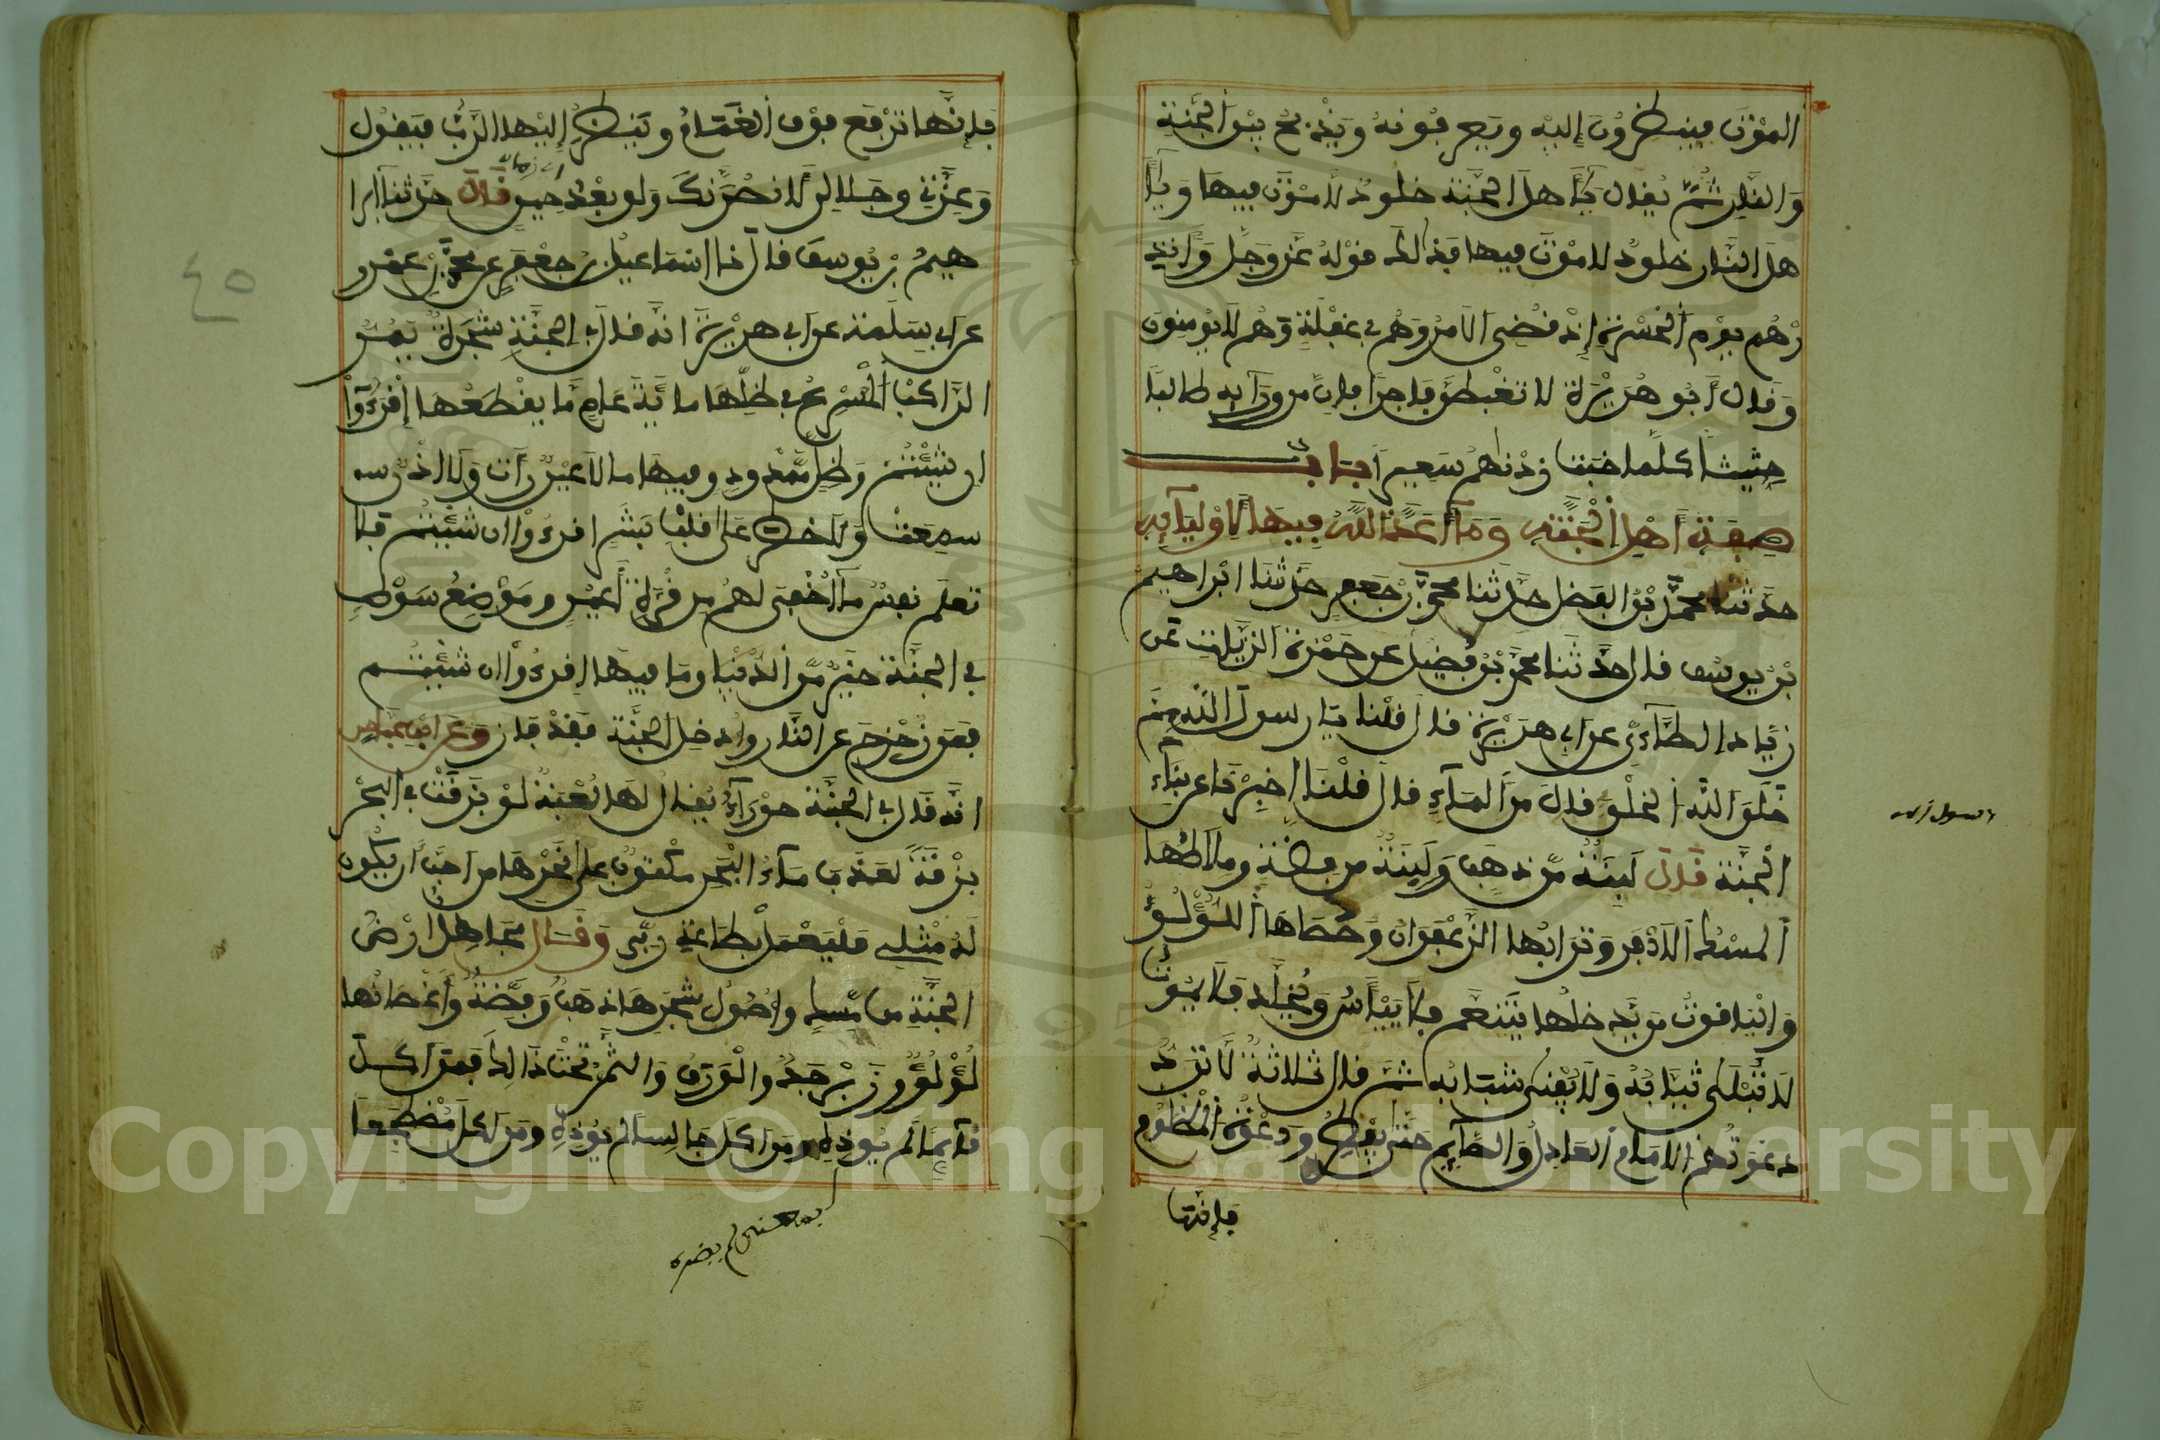 الموت فينظرون إليه ويعرفونه ويذبح بين الجنة
والنار ثم يقال يا أهل الجنة خلود لا موت فيها ويا
هل النار خلود لا موت فيها فذلك قوله عز وجل وأنذ
رهم يوم الحسرة إذ قضي الامر وهم في غفلة وهم لا يومنون
وقال أبو هريرة لا تغبطن فاجرا فإن من ورآيه طالبا
حثيثا كلما خبت زدنهم سعيرا باب
صفة أهل الجنة وما أعد الله فيها لأوليآيه
حدثنا محمد بن الفضل حدثنا محمد بن جعفر حدثنا ابراهيم
بن يوسف قال حدثنا محمد بن فضيل عن حمزة الزيات عن
زياد الطاءي عن ابي هريرة قال قلنا يا رسول الله مم
خلق الله الخلق قال من المآء قال قلنا اخبرنا عن بنآء
الجنة قال لبنة من ذهب ولبنة من فضة وملاطها
المسك الاذفر وترابها الزعفران وحصاها اللؤلؤ
والياقوت من يدخلها يتنعم فلا ييأس ويخلد فلا يموت
لا تبلى ثيابه ولا يفنى شبابه ثم قال ثلاثة لا ترد
دعوتهم الامام العادل والصآيم حتى يفطر ودعوة المظلوم
فإنها
فإنها ترفع فوق الغمام وينظر إليها الرب فيقول
وعزتي وجلالي لانصرنك ولو بعد حين قال حدثنا ابرا
هيم بن يوسف قال نا اسماعيل بن جعفر عن محمد بن عمرو
عن ابي سلمة عن ابي هريرة انه قال في الجنة شجرة يسير
الراكب المسرع في ظلها ماية عام ما يقطعها إقرءوا
ان شئتم وظل ممدود وفيها ما لا عين رأت ولا اذن
سمعت ولا خطر على قلب بشر اقرءوا ان شئتم فلا
تعلم نفس مآ اخفي لهم من قرة أعين وموضع سوط
في الجنة خير من الدنيا وما فيها اقرءوا ان شئتم
فمن زحزح عن النار وادخل الجنة فقد فاز وعن ابن عباس
انه قال في الجنة حورآء يقال لها لعبة لو بزقت في البحر
بزقة لعذب مآء البحر مكتوب على نحرها من احب أن يكون
له مثلي فليعمل بطاعة ربي وقال مجاهد ارض
الجنة من واصول شجرها ذهب وفضة وأغصانها
لؤلؤ وزبرجد والورق والثمر تحت ذالك فمن اكل
قآيما لم يوذه ومن اكل جالسا لم يوذه ومن اكل مضطجعا
لم يضره
٤٥